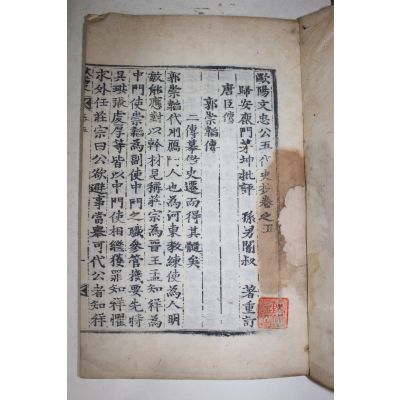 歐陽文忠公五代史抄卷之五
歸安鹿門茅坤批評　孫男闇叔　著重訂
唐臣傳
郭崇韜傳
二傳摹倣史遷而得其髓矣
郭崇韜代州鴈門人也為河東教練使為人明
敏能應對以幹材見稱莊宗為晉王孟知祥為
中門使崇韜為副使中門之職參管機要先時
吳珙張虔厚等皆以中門使相繼獲罪知祥懼
求外任莊宗曰公欲避事當舉可代公者知祥